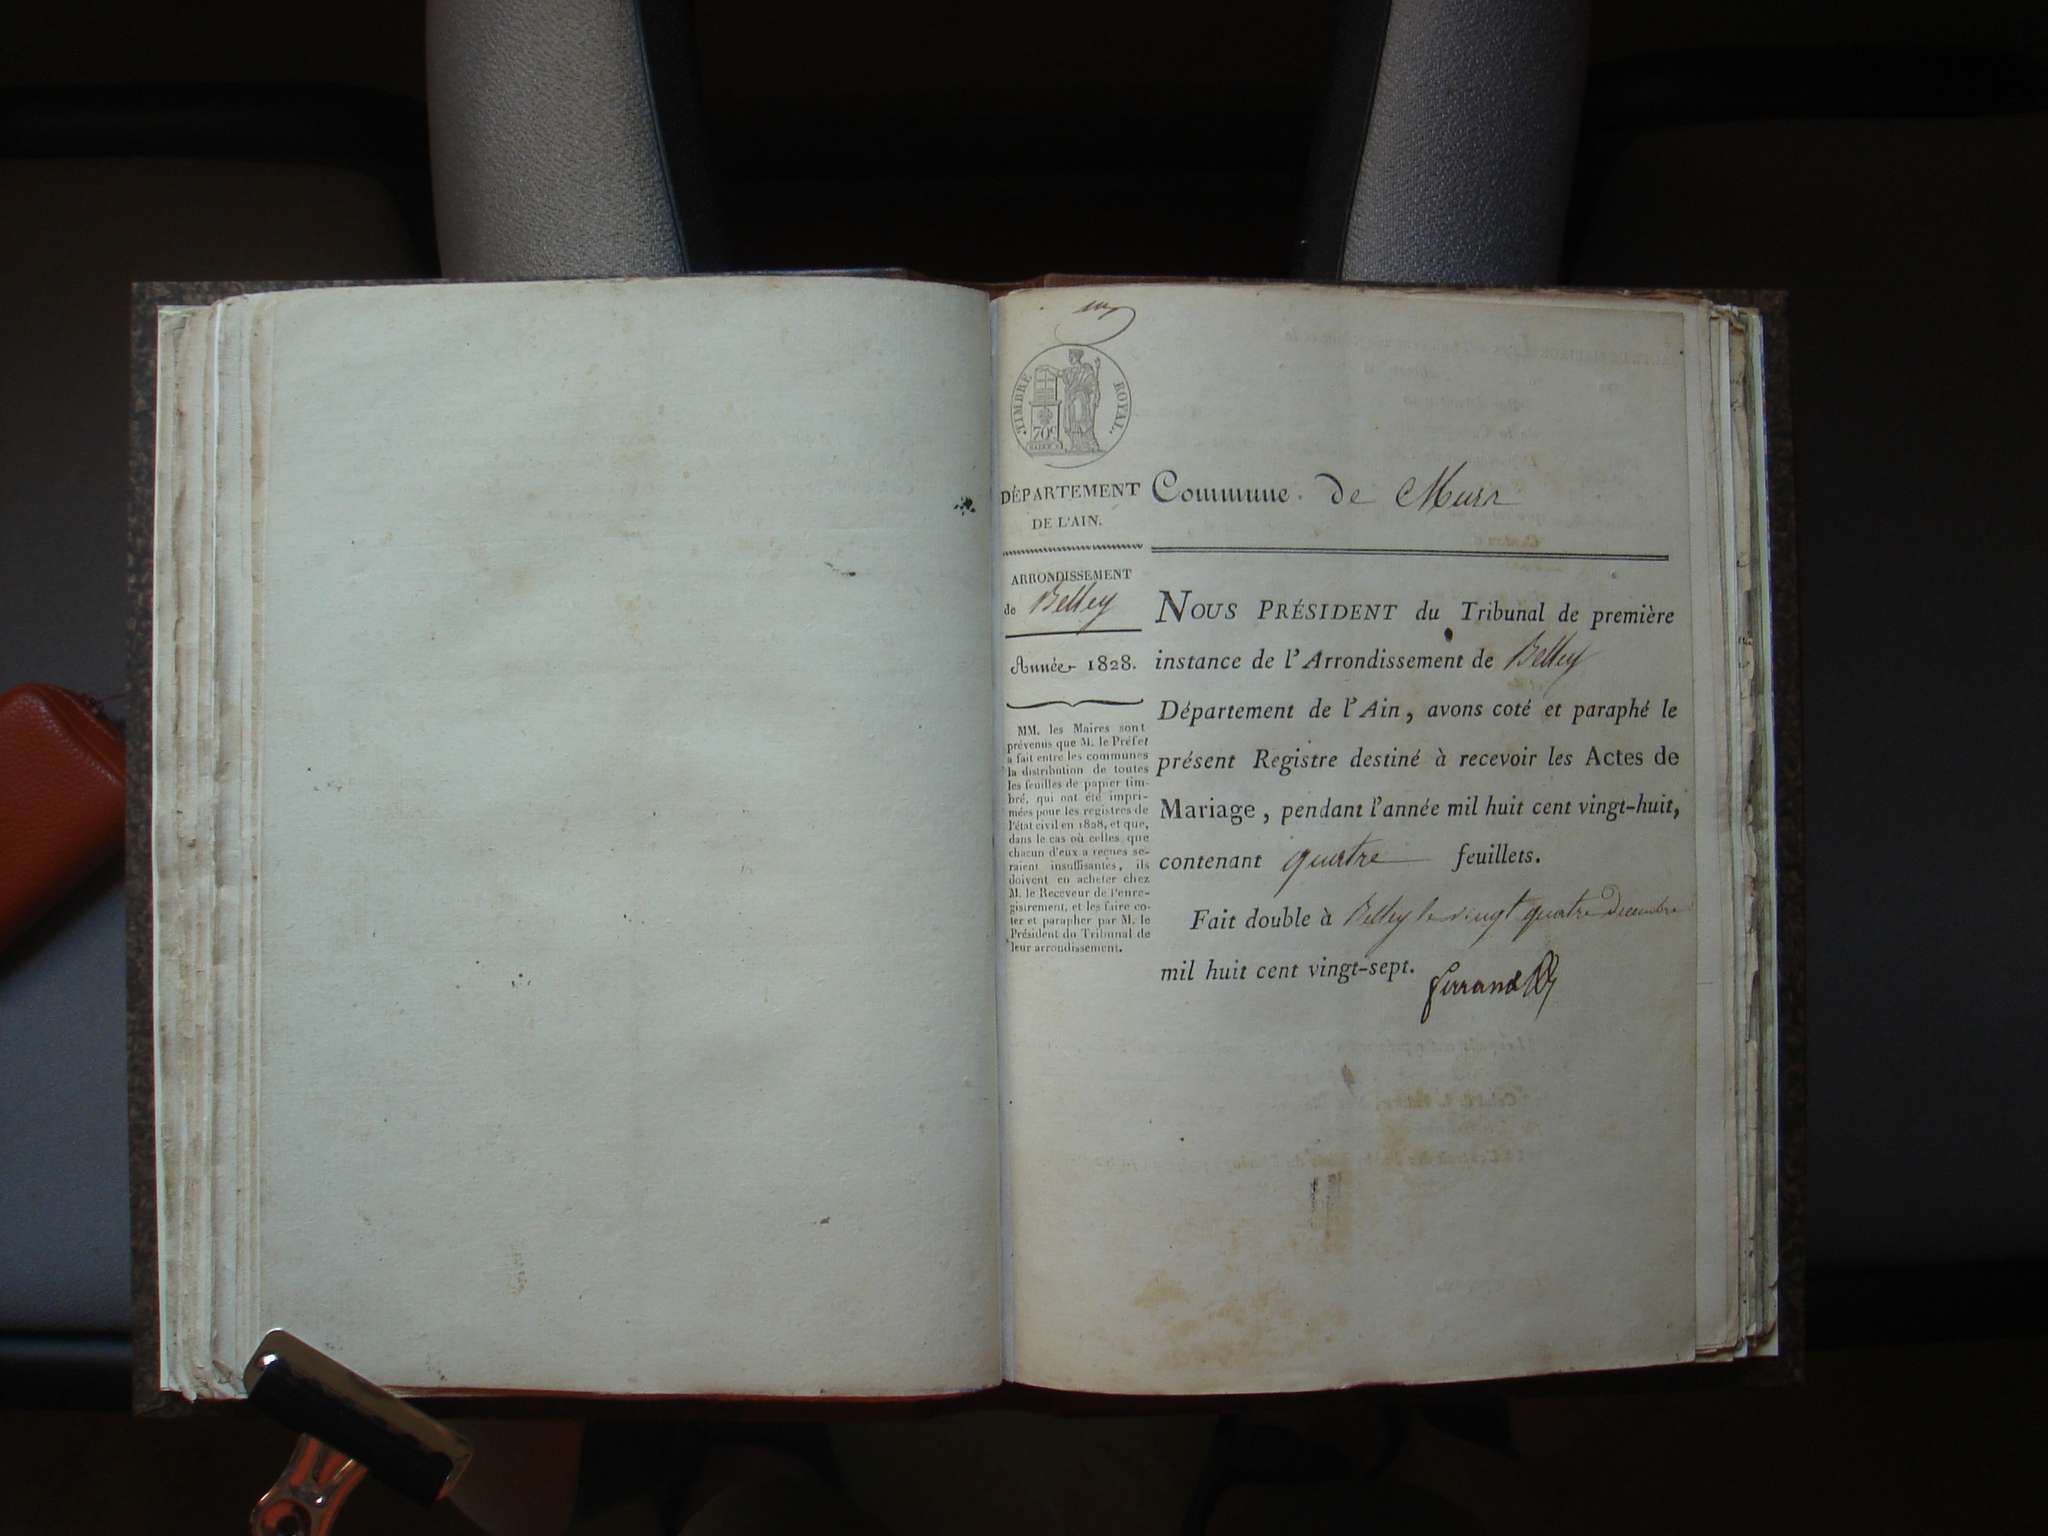 TIMBRE ROYAL.
70c
DÉPARTEMENT
DE L'AIN.
ARRONDISSEMENT
de Belley
Année 1828.
MM. les Maires sont
prévenus que M. le Préfet
a fait entre les communes
la distribution de toutes
les feuilles de papier tim-
bré, qui ont été impri-
mées pour les registres de
l'état civil en 1828, et que,
dans le cas où celles que
chacun d'eux a reçues se-
raient insuffisantes, ils
doivent en acheter chez
M. le Receveur de l'enre-
gistrement, et les faire co-
ter et parapher par M. le
Président du Tribunal de
leur arrondissement.
Commune de
NOUS PRÉSIDENT du Tribunal de première
instance de l'Arrondissement de Belley
Département de l'Ain, avons coté et paraphé le
présent Registre destiné à recevoir les Actes de
Mariage, pendant l'année mil huit cent vingt-huit,
contenant quatre feuillets.
Fait double à Belley le vingt quatre Decembre
mil huit cent vingt-sept.
ferrand